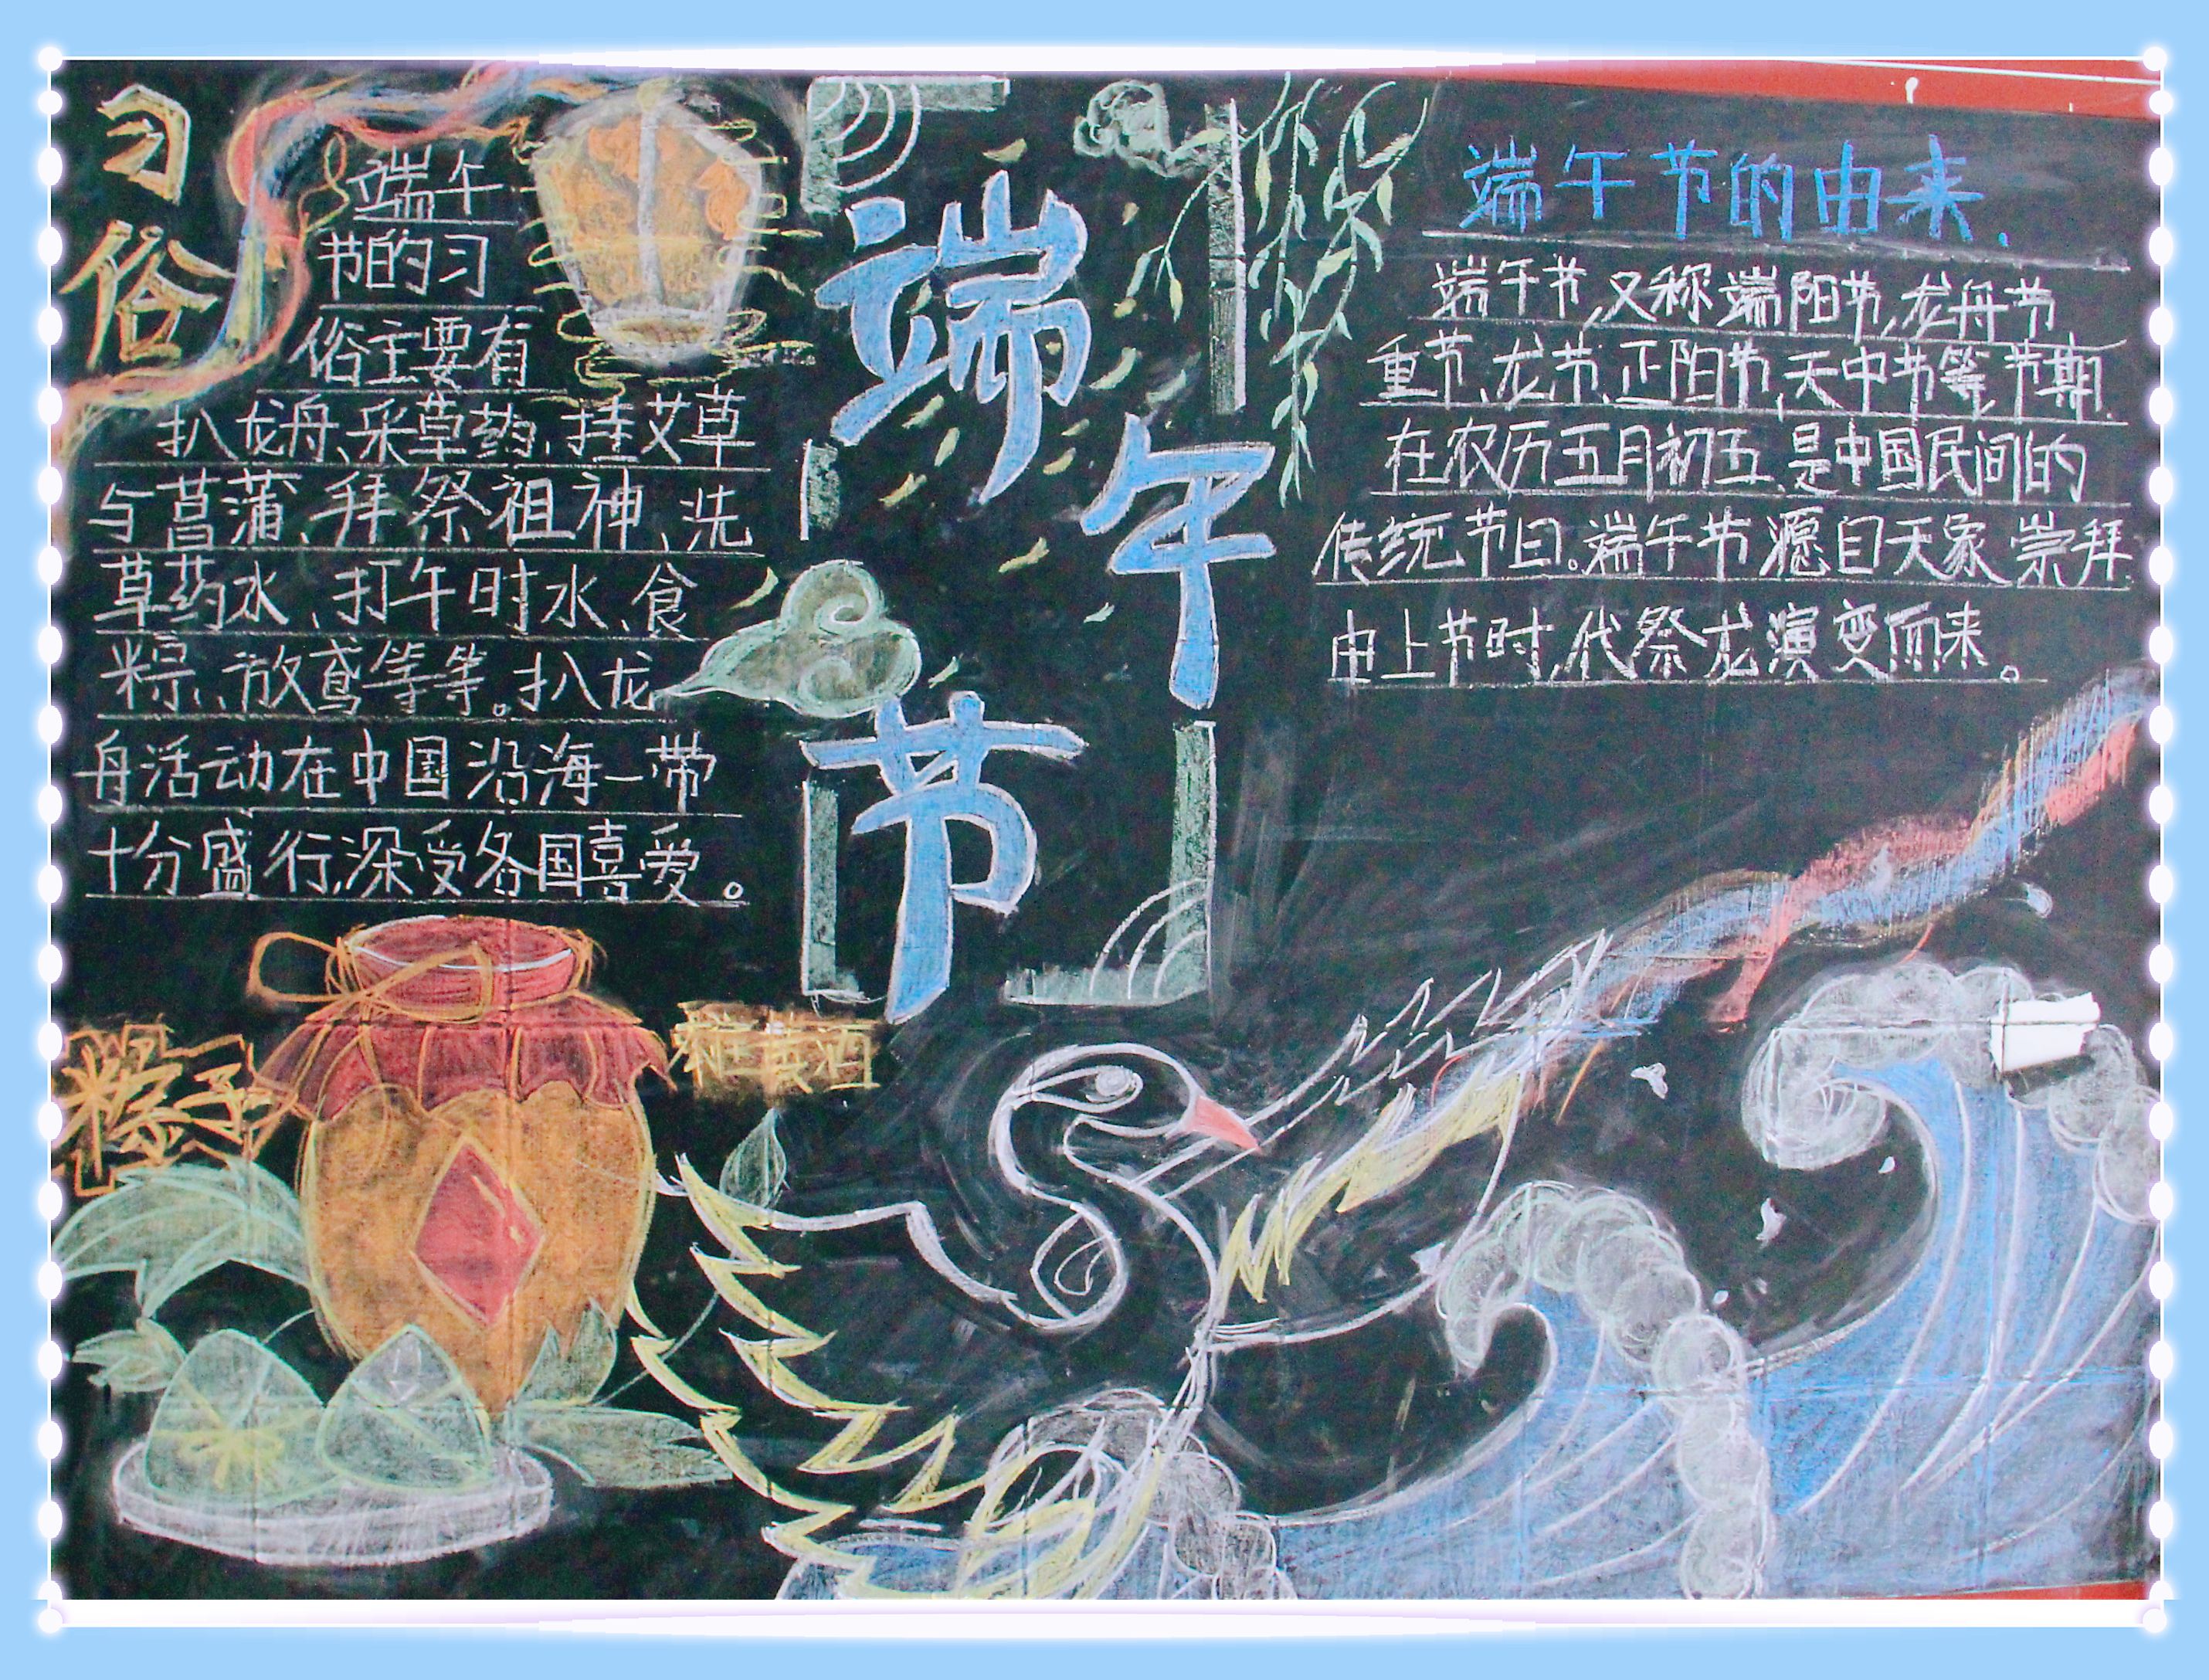 习俗
端午
节的习
俗主要有
扒龙舟、采草药、挂艾草
与菖蒲、拜祭祖神、洗
草药水、打午时水、食
粽、放鸢等等。扒龙
舟活动在中国沿海一带
十分盛行,深受各国喜爱。
端午节
端午节的由来.
端午节,又称端阳节,龙舟节
重节、龙节、正阳节,天中节等,节期
在农历五月初五,是中国民间的
传统节日。端午节源自天象崇拜
由上节时,代祭龙演变而来。
粽子
雄黄酒